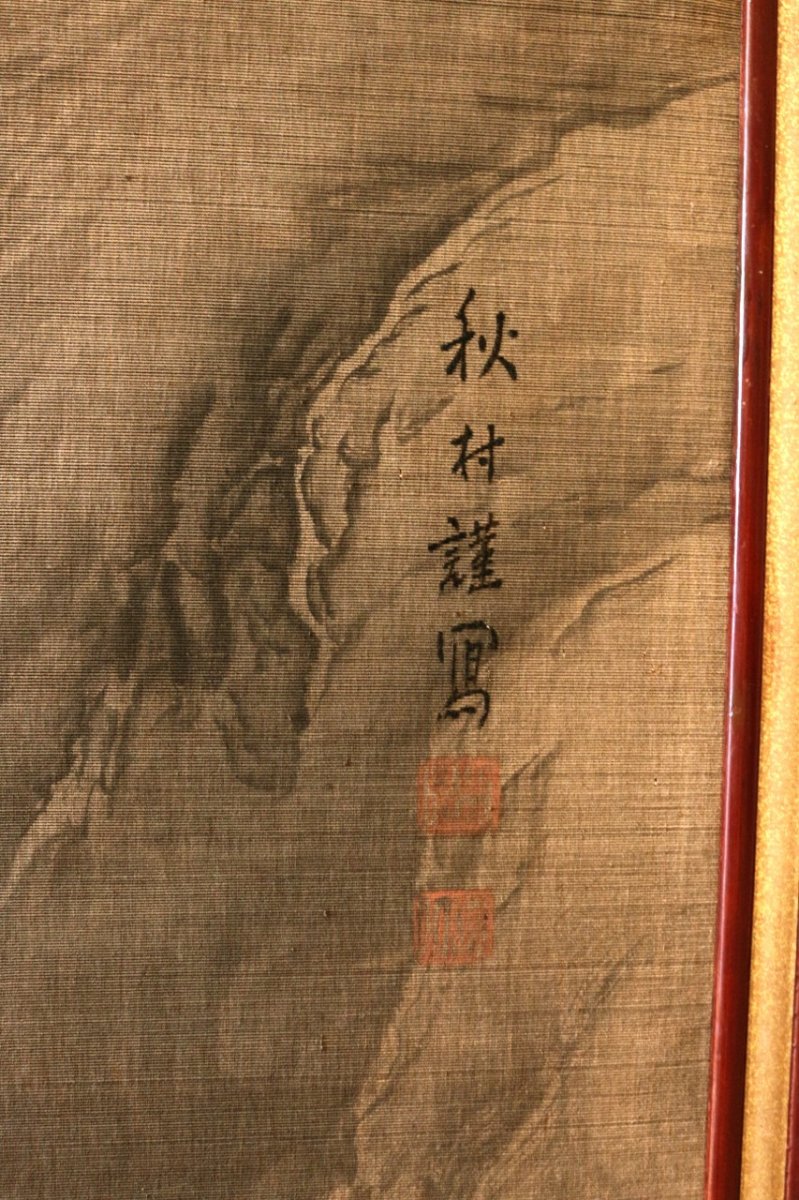 秋村謹寫